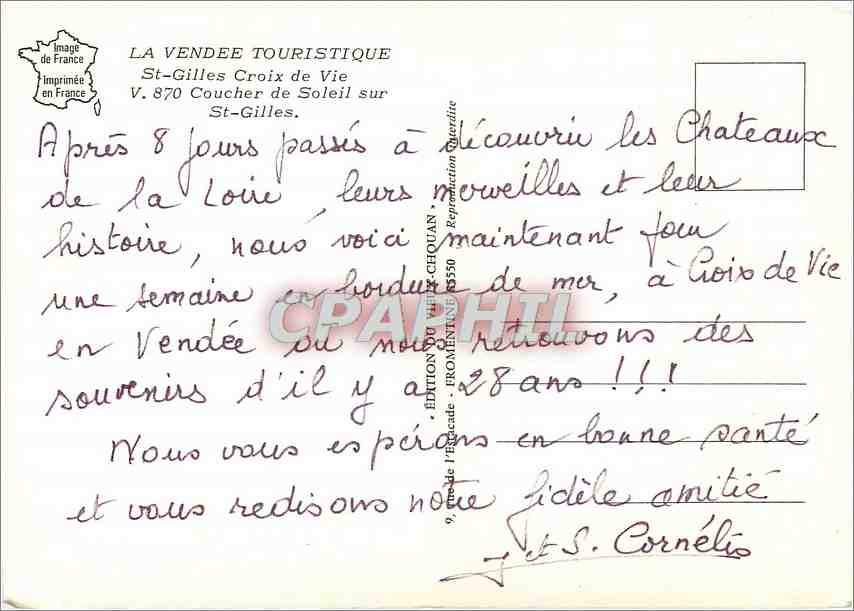 Image
de France
Imprimée
en France
LA VENDEE TOURISTIQUE
St-Gilles Croix de Vie
V. 870 Coucher de Soleil sur
St-Gilles.
Après 8 jours passés à découvrir les Chateaux
de la Loire, leurs merveilles et leur
histoire, nous voici maintenant pour
une semaine en bordure de mer, à Croix de Vie
en Vendée où nous retrouvons des
souvenirs d'il y a 28 ans !!!
Nous vous espérons en bonne santé
et vous redisons notre fidèle amitié
J et S. Cornélis
9, rue de l'Estacade - FROMENTINE 85550 Reproduction interdite
• ÉDITION DU VIEUX-CHOUAN •
CPAPHIL